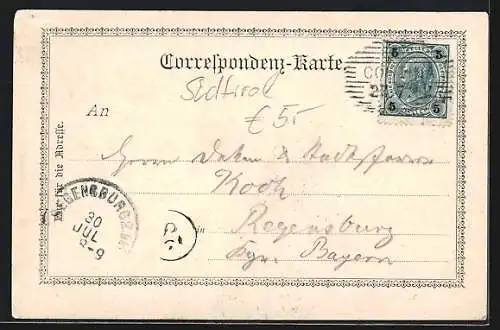 Correspondenz-Karte.
Südtirol
5
5 5
CO
27 7
€ 5,-
An
Herrn Dekan & Stadtpfarrer
Koch
in Regensburg
Kgr. Bayern
Nur für die Adresse.
REGENSBURG
30
JUL
8-9